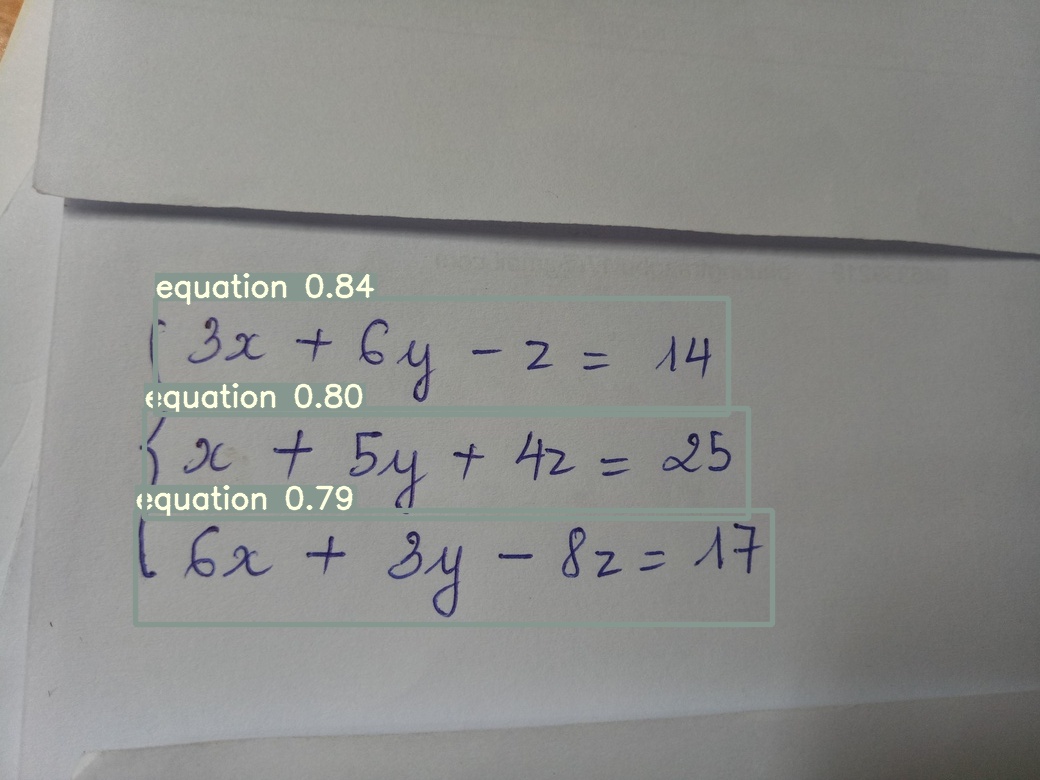 equation 0.84
3x + 6y - z = 14
equation 0.80
x + 5y + 4z = 25
equation 0.79
6x + 3y - 8z = 17